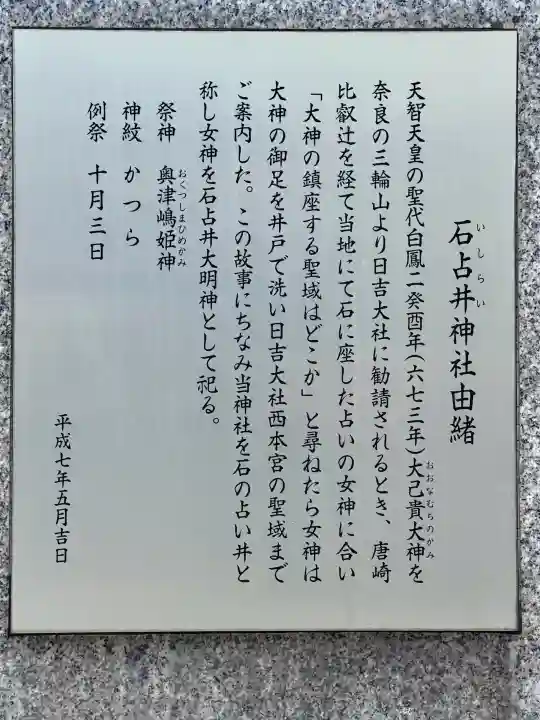 石占井神社由緒
いしらい
天智天皇の聖代白鳳二癸酉年(六七三年)大己貴大神を
おおなむちのかみ
奈良の三輪山より日吉大社に勧請されるとき、唐崎
比叡辻を経て当地にて石に座した占いの女神に合い
「大神の鎮座する聖域はどこか」と尋ねたら女神は
大神の御足を井戸で洗い日吉大社西本宮の聖域まで
ご案内した。この故事にちなみ当神社を石の占い井と
称し女神を石占井大明神として祀る。
祭神 奥津嶋姫神
おくつしまひめかみ
神紋 かつら
例祭 十月三日
平成七年五月吉日